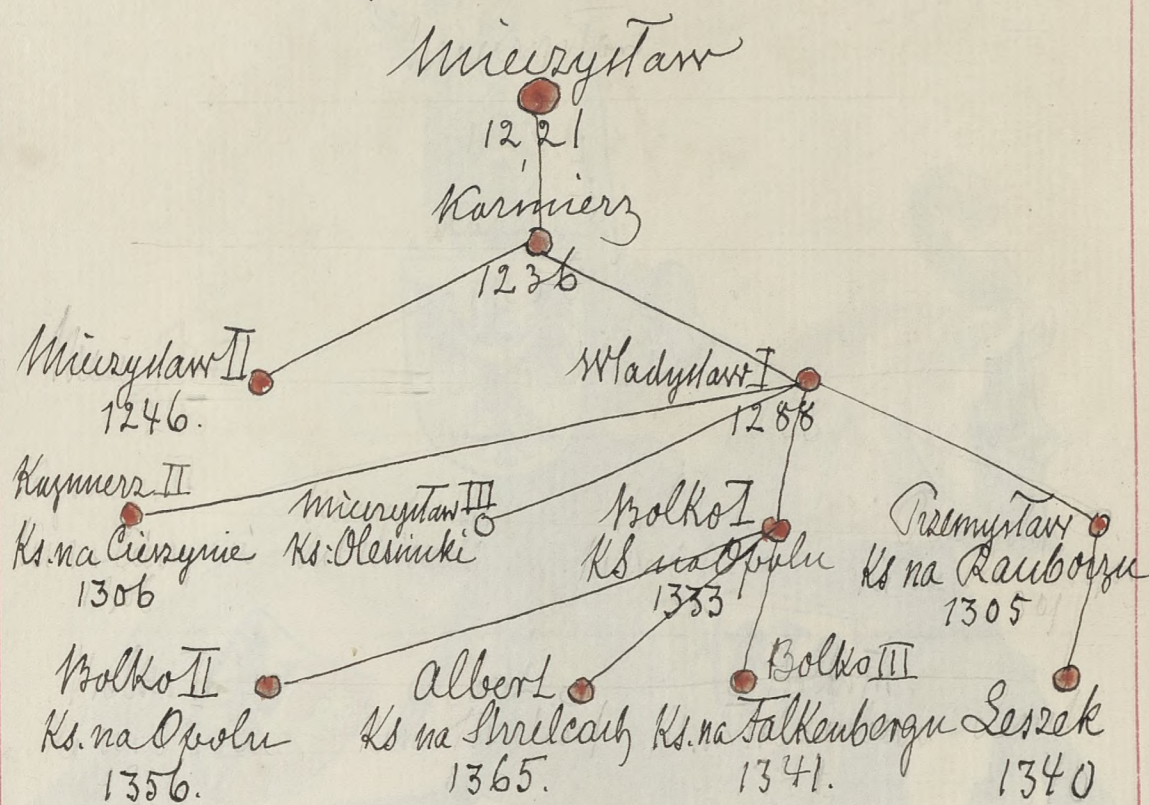 Mieczysław
1221
Kaźmierz
1236
Mieczysław II
1246.
Władysław I
1288
Kazimierz II
Ks. na Cieszynie
1306
Mieczysław III
Ks: Oleśnicki
Bolko I
KS na Opolu
1333
Przemysław
Ks na Raciborzu
1305
Bolko II
Ks. na Opolu
1356.
Albert
Ks na Strzelcach
1365.
Bolko III
Ks. na Falkenbergu
1341.
Leszek
1340